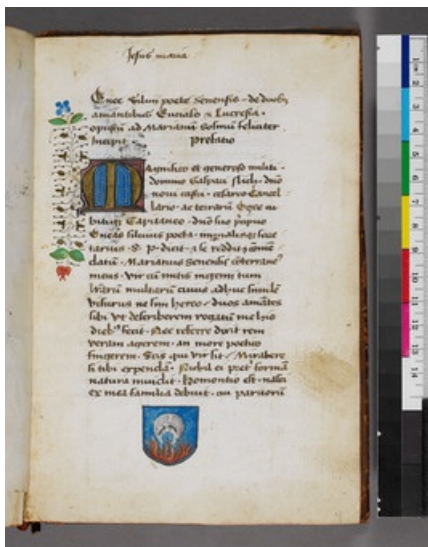 Jesus maria
Enee Siluii poete Senensis · de duob9
amantibus Eurialo & Lucresia ·
opusculū ad Marianū Solinū feliciter
Incipit prefatio
Magnifico et generoso militi ·
domino Gaspari Slick · dno
noui castri · cesareo Cancel
lario · ac terrarū Egre cu
Capitaneo · dno suo
Eneas siluius poeta · imꝑialisq3 secre
tarius · S · P · dicit · & se reddit comē
datū · Marianus Senensis
meus · vir cū mitis ingenii tum
lrārū multarū cuius adhuc similē
visurus ne sim hereo · duos amātes
sibi vt describerem rogatū me his
dieb9 fecit · Nec referre dixit rem
veram agerem · an more poetico
fingerem · Scis qui vir sit · Mirabere
si tibi expendā · Nichil ei pret formā
natura inuidit · Homontio est · nasci
ex mea familia debuit · cui